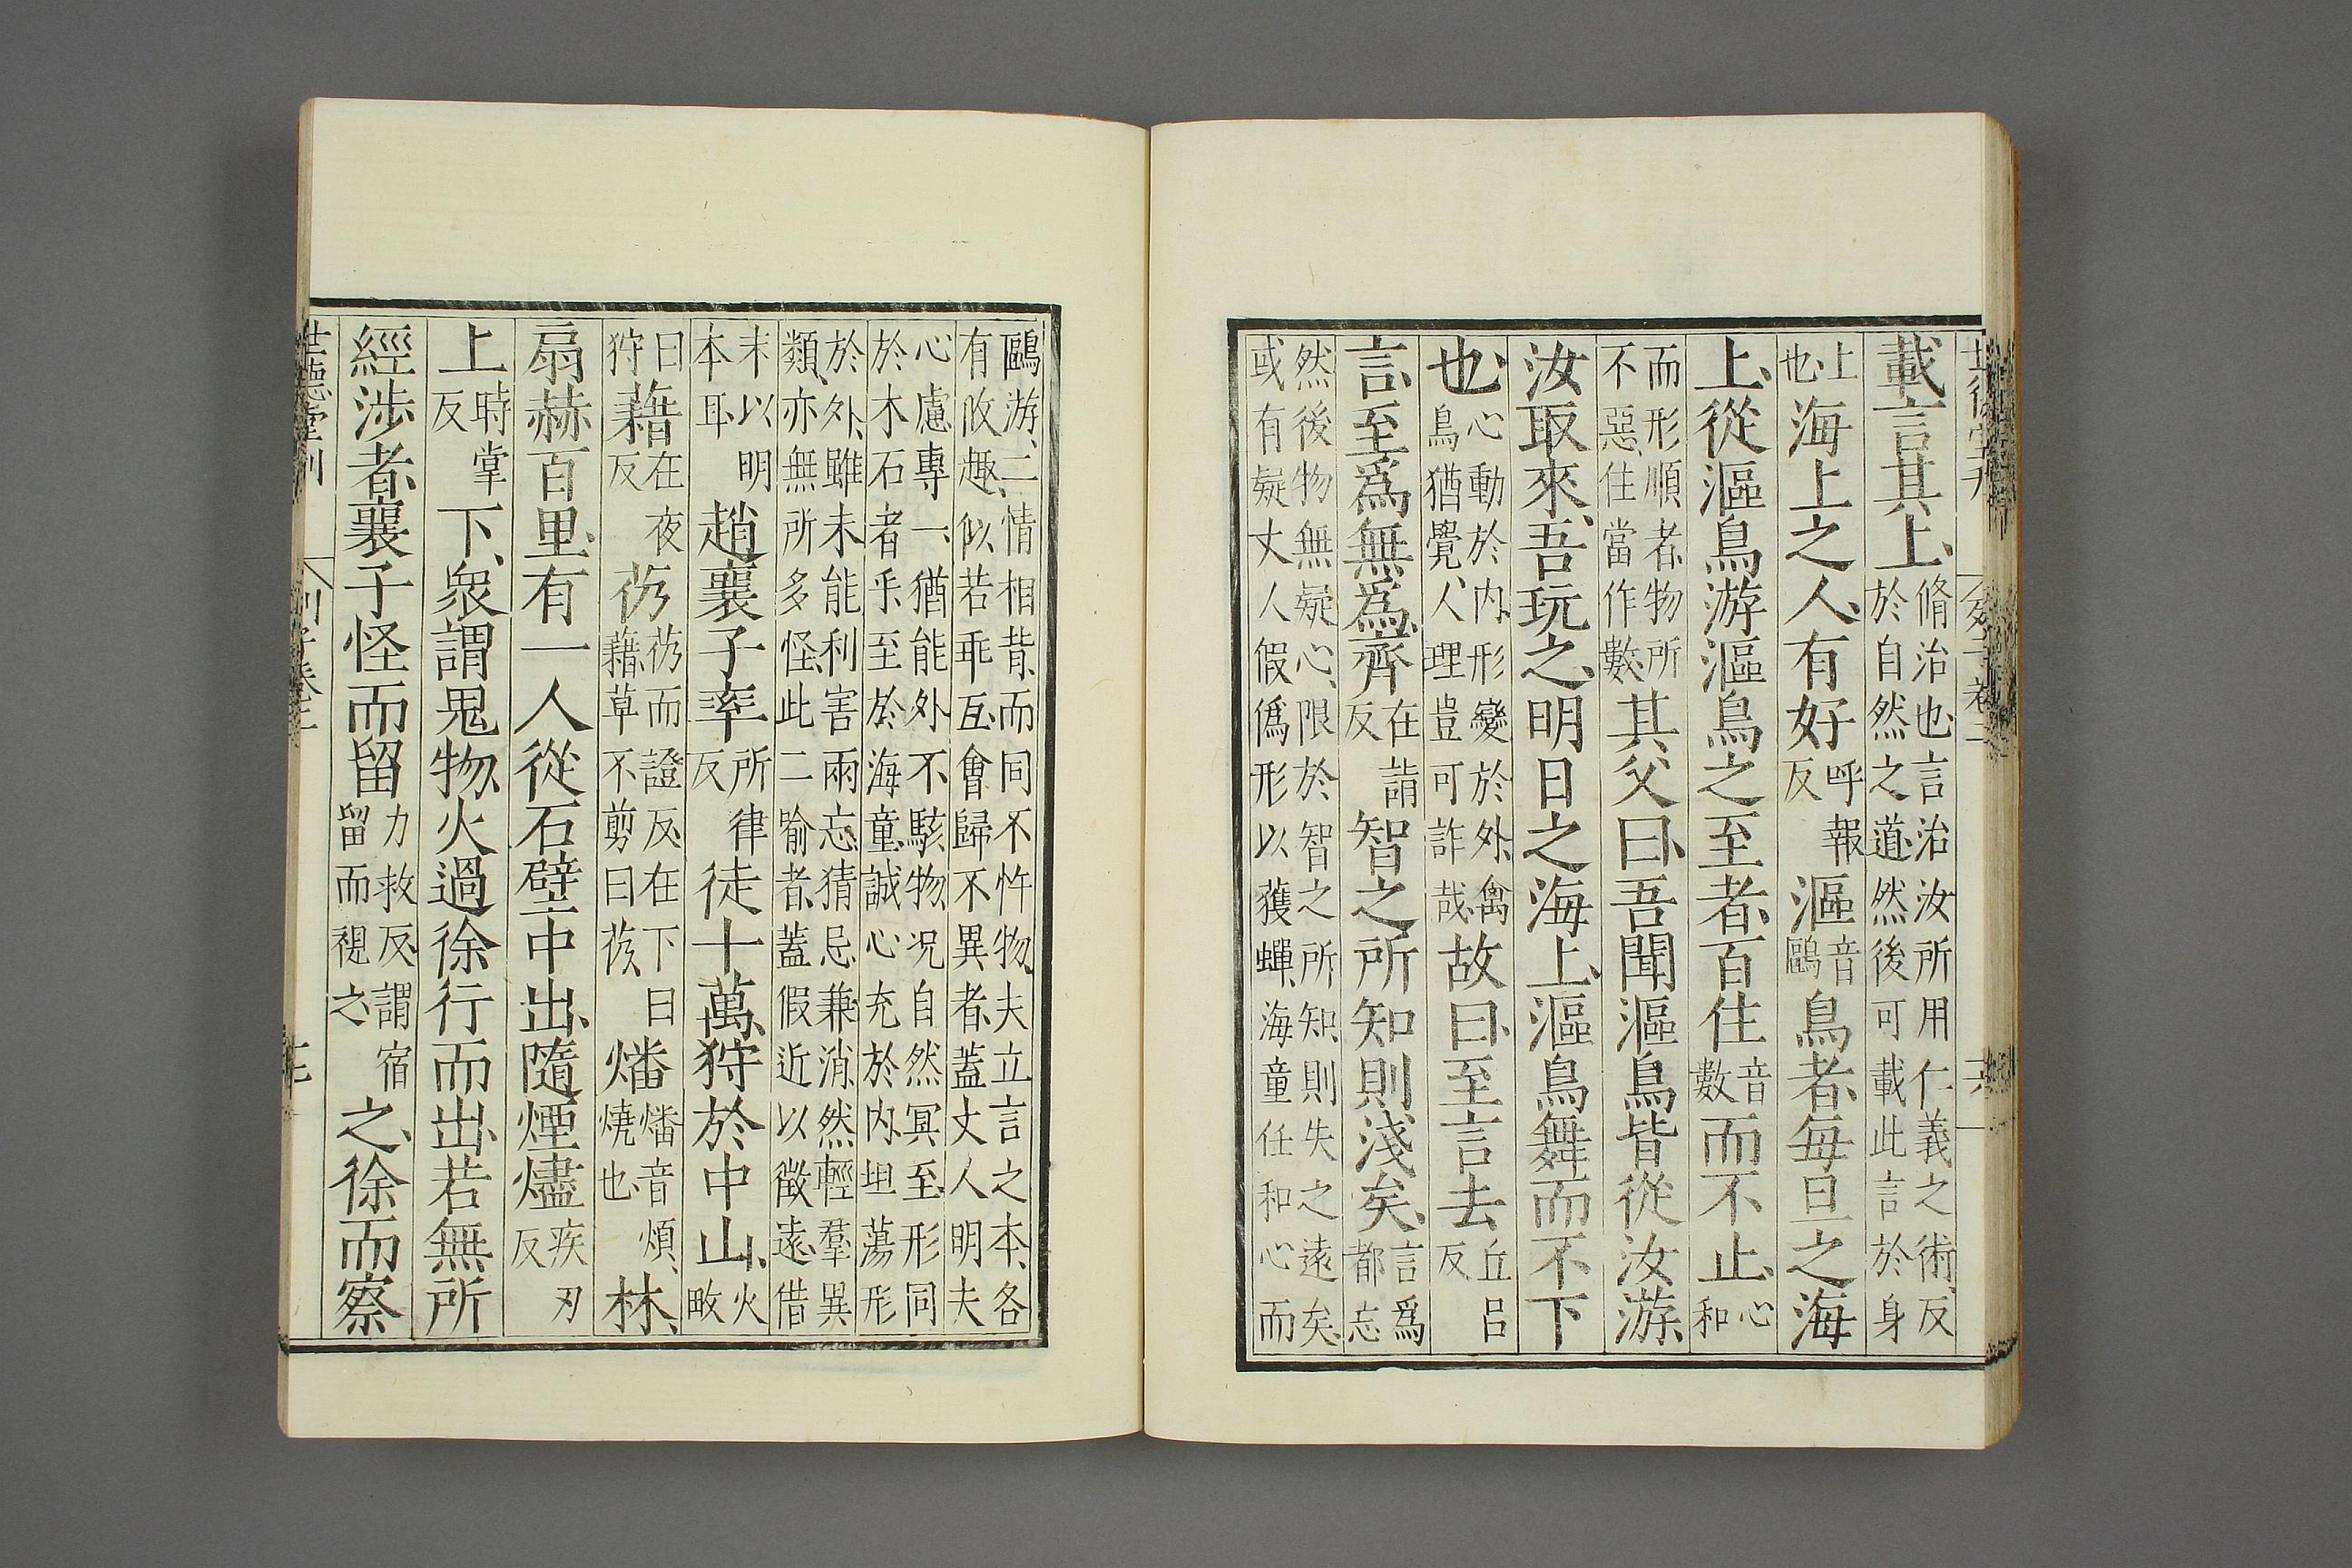 載言其上脩治也言治汝所用仁義之術反於自然之道然後可載此言於身
上也海上之人有好呼報反漚音鷗鳥者每旦之海
上從漚鳥游漚鳥之至者百住音數而不止心和
而形順者物所不惡住當作數其父曰吾聞漚鳥皆從汝游
汝取來吾玩之明日之海上漚鳥舞而不下
也心動於内形變於外禽鳥猶覺人理豈可詐哉故曰至言去丘呂反
言至爲無爲齊在詣反智之所知則淺矣言爲都忘
然後物無疑心限於智之所知則失之遠矣或有疑丈人假僞形以獲蟬海童任和心而
鷗游二情相背而同不忤物夫立言之本各有攸趣似若乖互會歸不異者蓋丈人明夫
心慮專一猶能外不駭物况自然冥至形同於木石者乎至於海童誠心充於内坦蕩形
於外雖未能利害兩忘猜忌兼消然輕羣異類亦無所多怪此二喻者蓋假近以徵遠借
末以明本耳趙襄子率所律反徒十萬狩於中山火畋
曰狩藉在夜反芿芿而證反在下曰藉草不剪曰芿燔燔音煩燒也林
扇赫百里有一人從石壁中出隨煙燼疾刃反
上時掌反下衆謂鬼物火過徐行而出若無所
經涉者襄子怪而留力救反謂宿留而視之之徐而察
世德堂刊 列子卷二